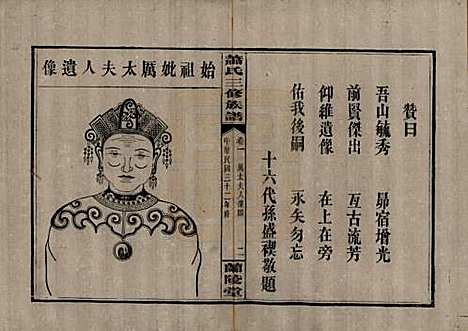 贊曰
吾山毓秀　昴宿增光
前賢傑出　亙古流芳
仰維遺像　在上在旁
佑我後嗣　永矢勿忘
十六代孫盛禊敬題
蕭氏三修族譜
卷一　厲太夫人像圖　二
中華民國三十二年修
蘭陵堂
始祖妣厲太夫人遺像